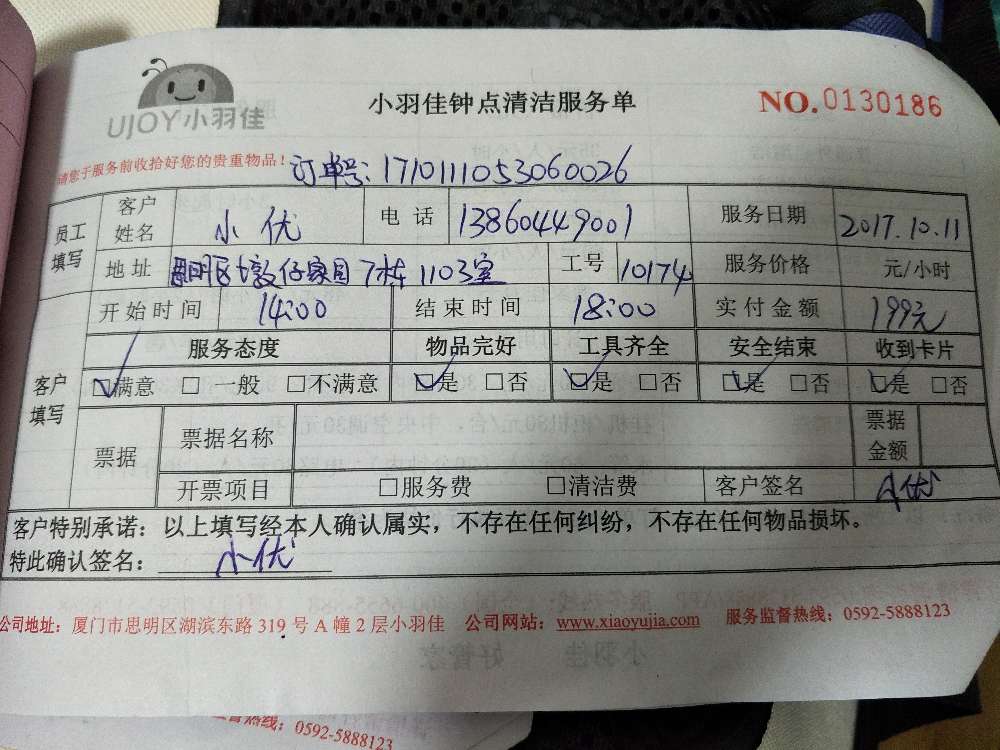 UJOY小羽佳
小羽佳钟点清洁服务单
NO.0130186
请您于服务前收拾好您的贵重物品！
订单号：1710111053060026
员工填写 客户姓名 小优 电话 13860449001 服务日期 2017.10.11
地址 思明区墩仔家园7栋1103室 工号 10174 服务价格 元/小时
开始时间 14:00 结束时间 18:00 实付金额 199元
客户填写 服务态度 物品完好 工具齐全 安全结束 收到卡片
☑满意 □一般 □不满意 ☑是 □否 ☑是 □否 ☑是 □否 ☑是 □否
票据 票据名称 票据金额
开票项目 □服务费 □清洁费 客户签名 小优
客户特别承诺：以上填写经本人确认属实，不存在任何纠纷，不存在任何物品损坏。
特此确认签名：小优
公司地址：厦门市思明区湖滨东路 319 号 A 幢 2 层小羽佳 公司网站：www.xiaoyujia.com 服务监督热线：0592-5888123
监督热线：0592-5888123